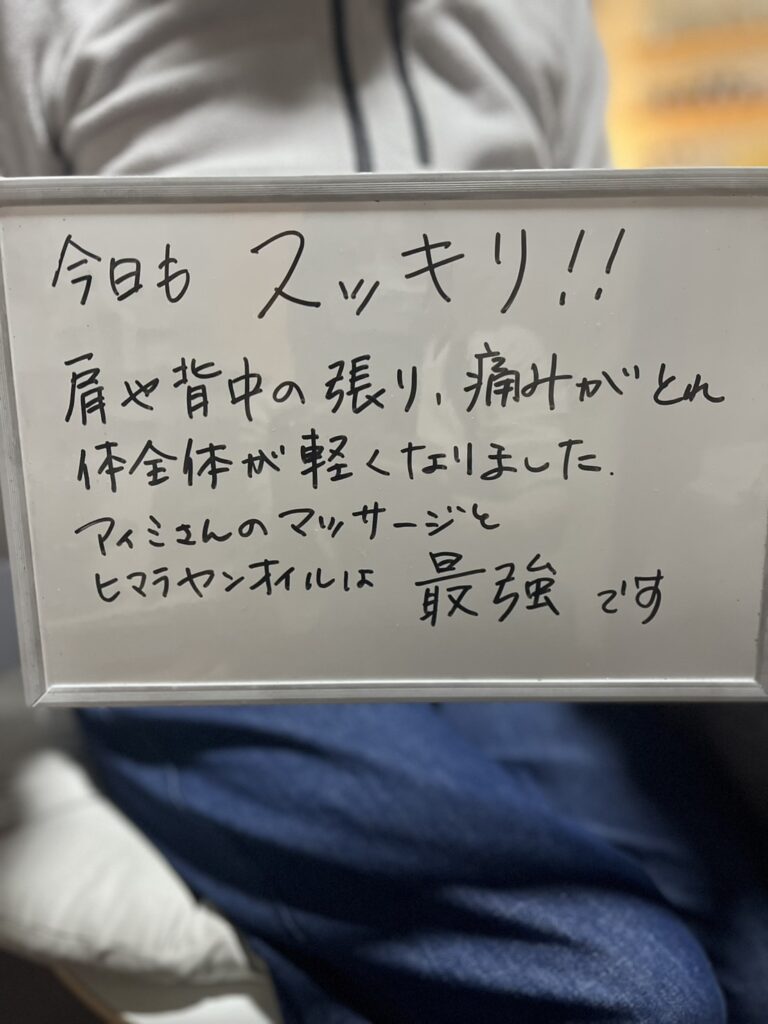 今日も スッキリ!!
肩や背中の張り、痛みがとれ
体全体が軽くなりました.
アイミさんのマッサージと
ヒマラヤンオイルは 最強 です